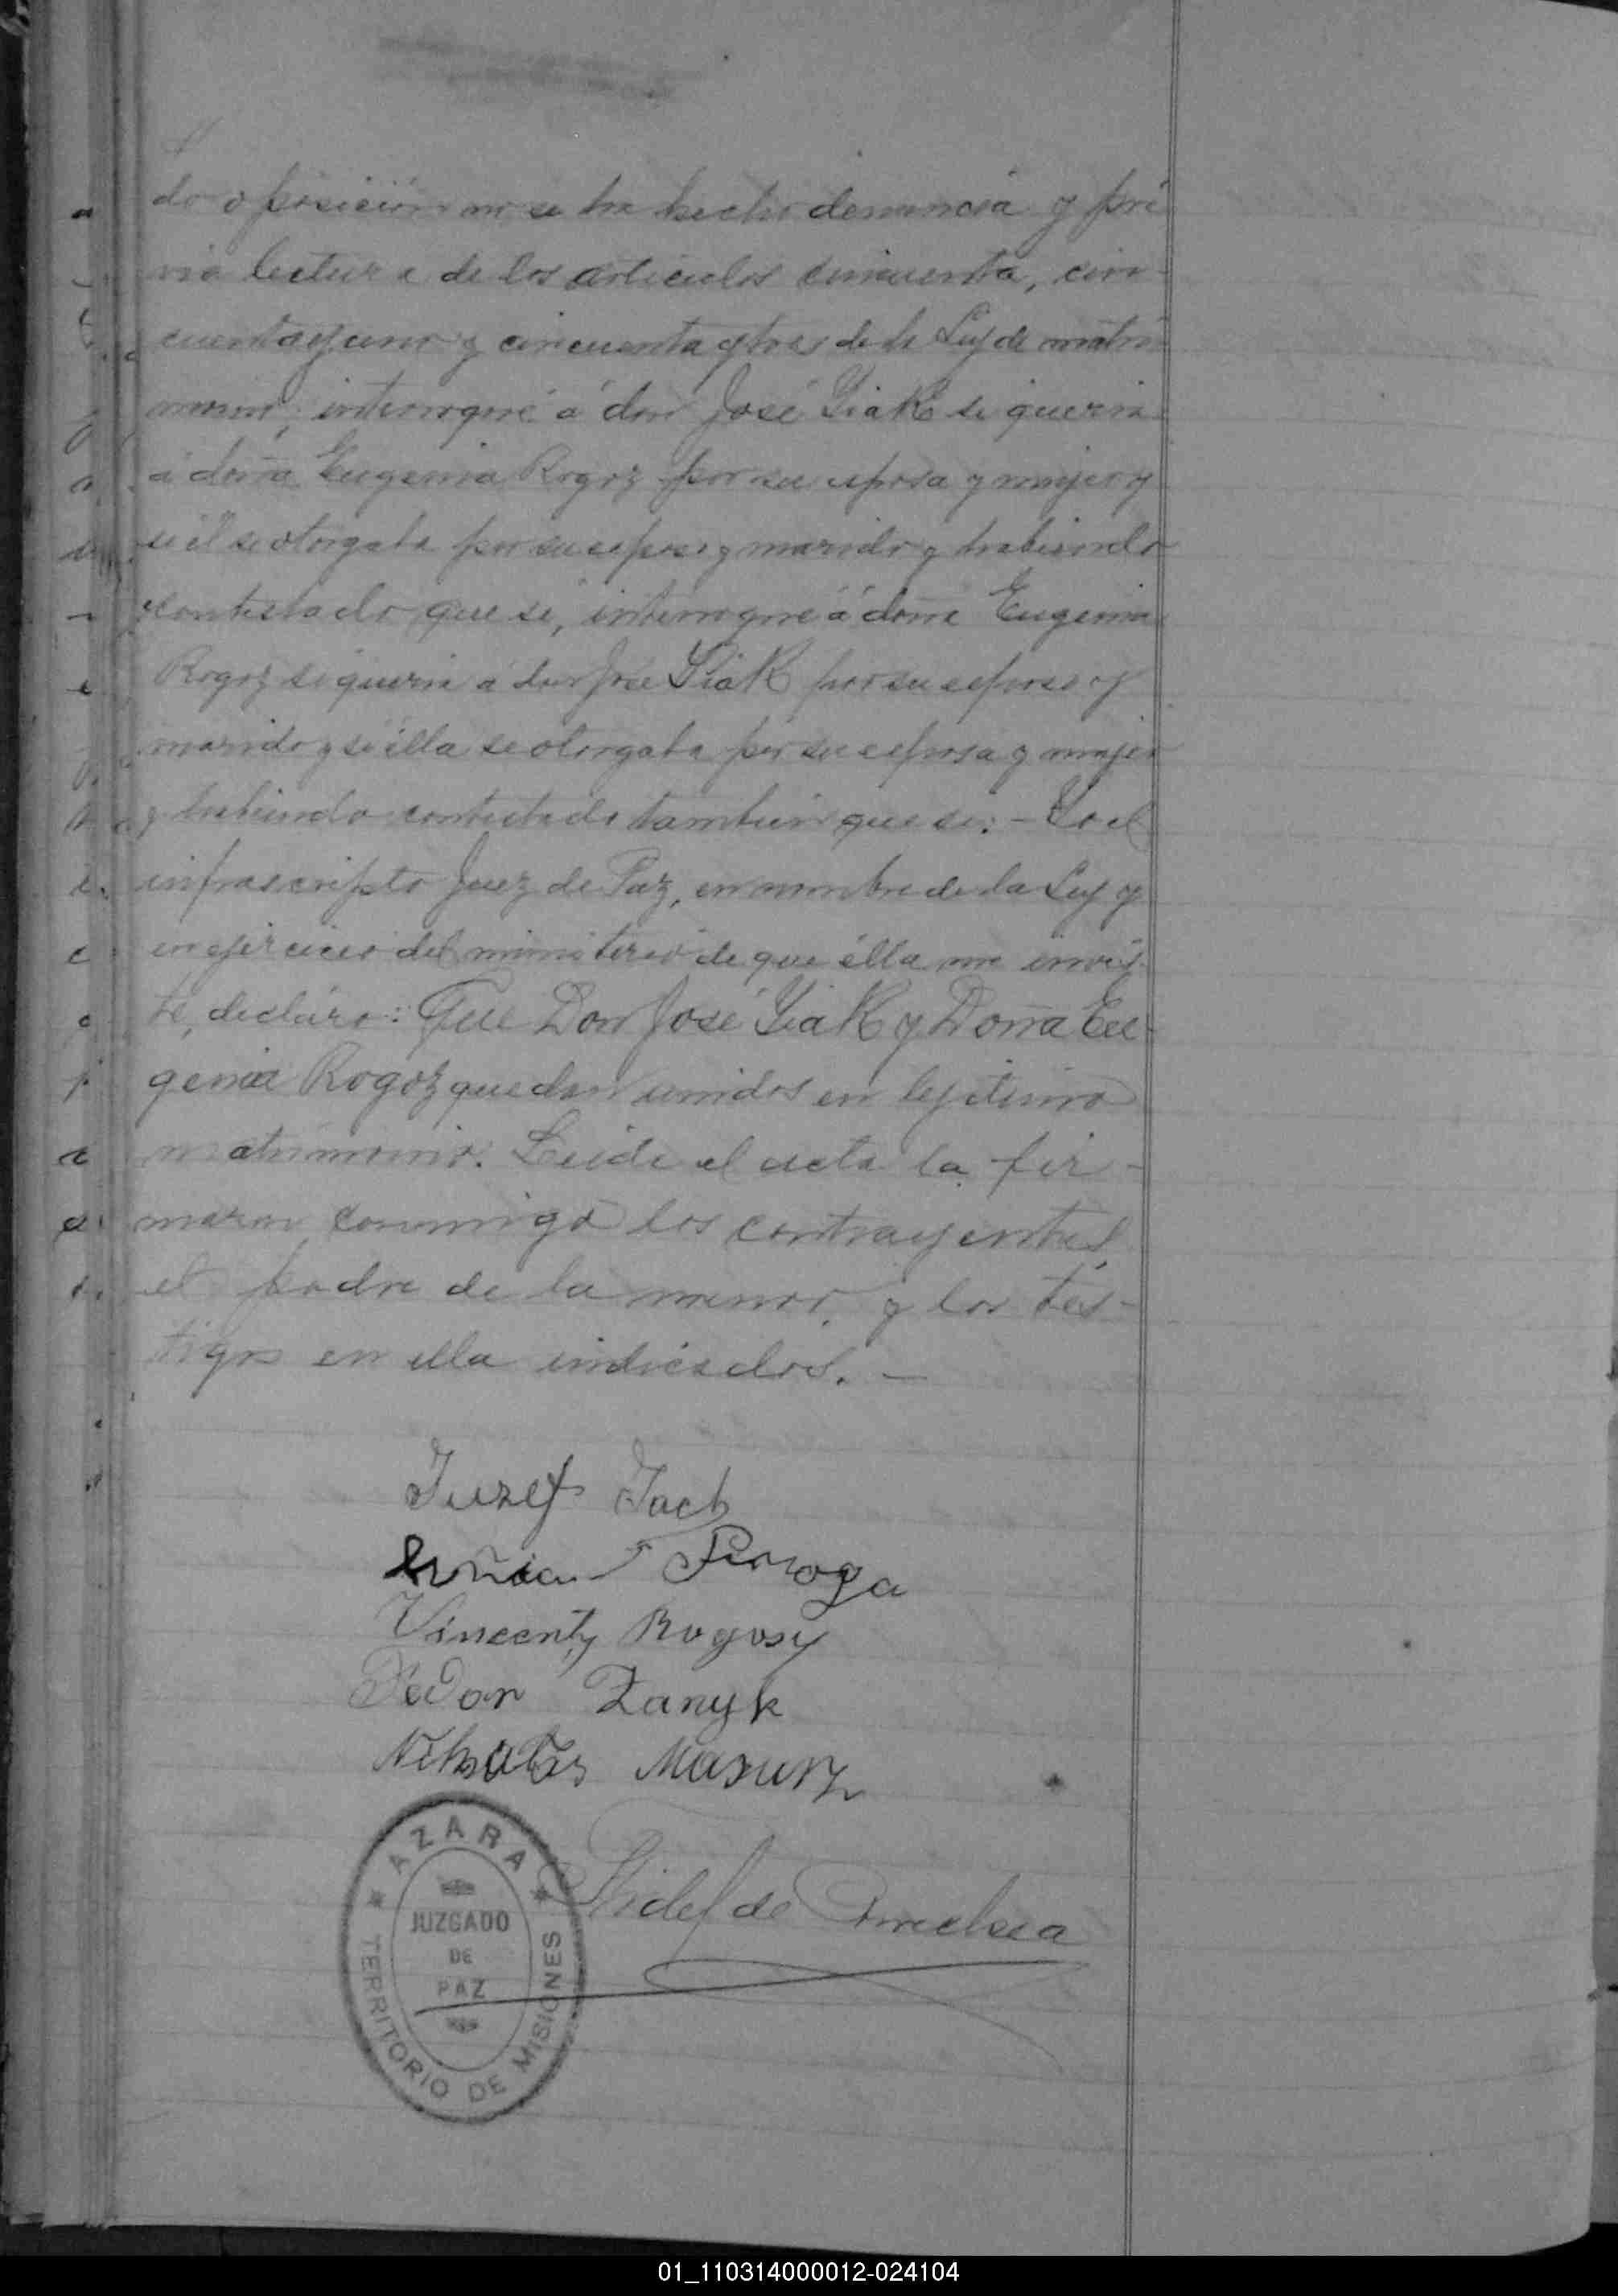 do oposición no se ha hecho denuncia y pré
via lectura de los artículos cincuenta, cin-
cuenta y uno y cincuenta y tres de la Ley de matri
monio, interrogué á don José Yiak si queria
á doña Eugenia Rogoz por su esposa y mujer y
si él se otorgaba por su esposo y marido y habiendo
contestado que si, interrogué á doña Eugenia
Rogoz si queria á don José Yiak por su esposo y
marido y si élla se otorgaba por su esposa y mujer
y habiendo contestado tambien que si: - Yo el
infrascripto Juez de Paz, en nombre de la Ley y
en ejercicio del ministerio de que élla me invis-
te, declaro: Que Don José Yiak y Doña Eu-
genia Rogoz quedan unidos en lejitimo
matrimonio. Leida el acta la fir-
maron conmigo los contrayentes,
el padre de la menor, y los tes-
tigos en ella indicados. -
Juzef Jach
Vincenty Rogosy
Fedor Zanyk
Mazurz
AZARA
JUZGADO
DE
PAZ
TERRITORIO DE MISIONES
Fidel de
01_110314000012-024104